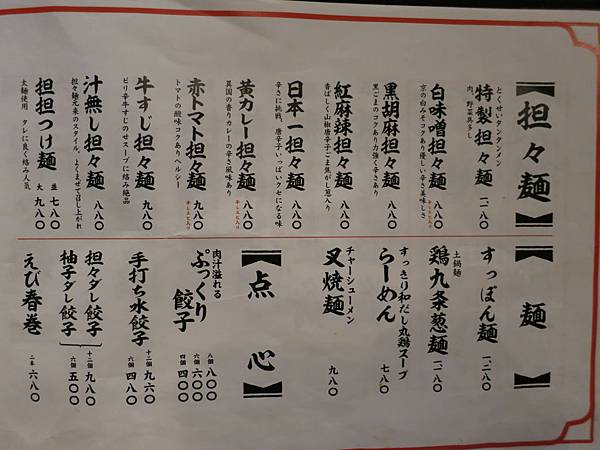 【担々麺】
とくせいタンタンメン
特製担々麺 一、一八〇
肉、野菜具多し
白味噌担々麺 八八〇
京の白みそコクあり優しい辛さ美味しさ
黒胡麻担々麺 八八〇
黒ごまのコクあり力強く辛さあり
紅麻辣担々麺 八八〇
香ばしく山椒唐辛子ごま焦がし葱入り
日本一担々麺 八八〇
辛さに挑戦、唐辛子いっぱいクセになる味
黄カレー担々麺 八八〇
異国の香りカレーの辛さ風味あり
赤トマト担々麺 九八〇
トマトの酸味コクありヘルシー
牛すじ担々麺 九八〇
ピリ辛牛すじのせスープに絡み絶品
汁無し担々麺 八八〇
担々麺元来のスタイル、よくまぜて召し上がれ
担担つけ麺 並 七八〇 大 九八〇
太麺使用 タレに良く絡み人気
【麺】
すっぽん麺 一、二八〇
土鍋麺
鶏九条葱麺 一、一八〇
すっきり和だし丸鶏スープ
らーめん 七八〇
チャーシューメン
叉焼麺 九八〇
【点心】
肉汁溢れる
ぷっくり餃子 八個 八〇〇 六個 六〇〇 四個 四〇〇
手打ち水餃子 十二個 九六〇 六個 四八〇
担々ダレ餃子
柚子ダレ餃子
十二個 九八〇 六個 五〇〇
えび春巻 二本 六八〇